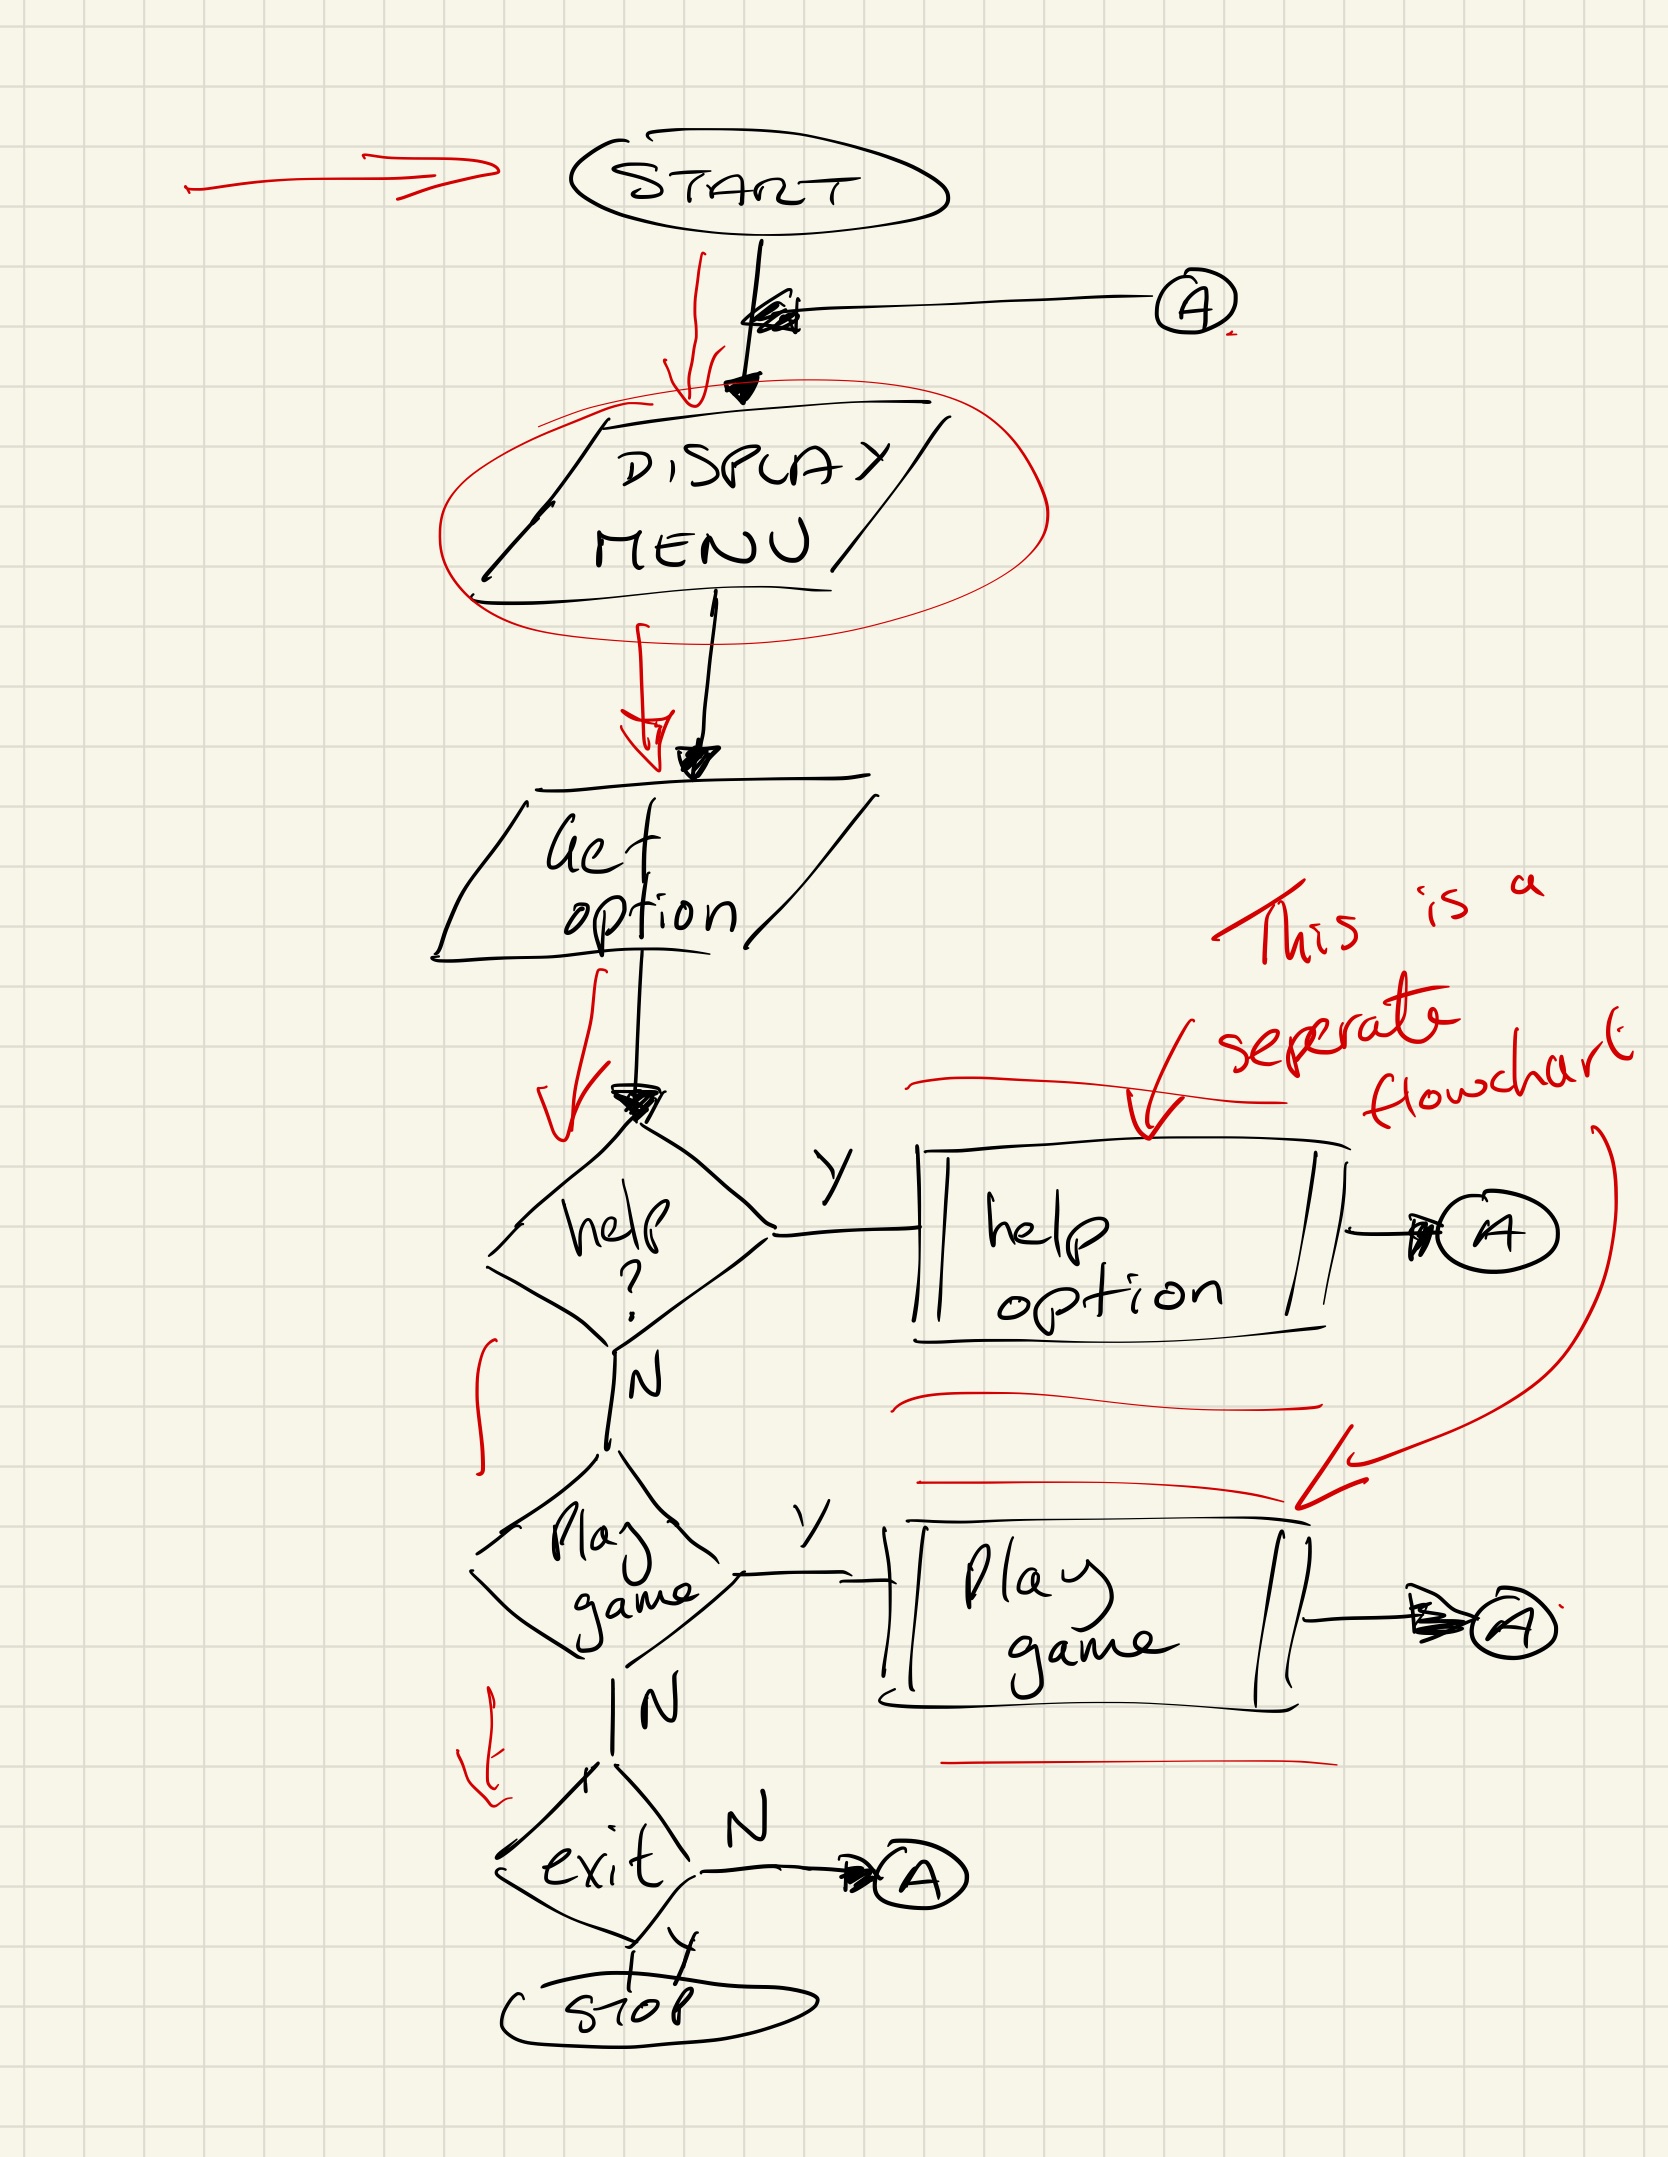 START
A
DISPLAY
MENU
Get
option
This is a
seperate
flowchart
help
?
Y
help
option
A
N
Play
game
Y
Play
game
A
N
exit
N
A
Y
STOP